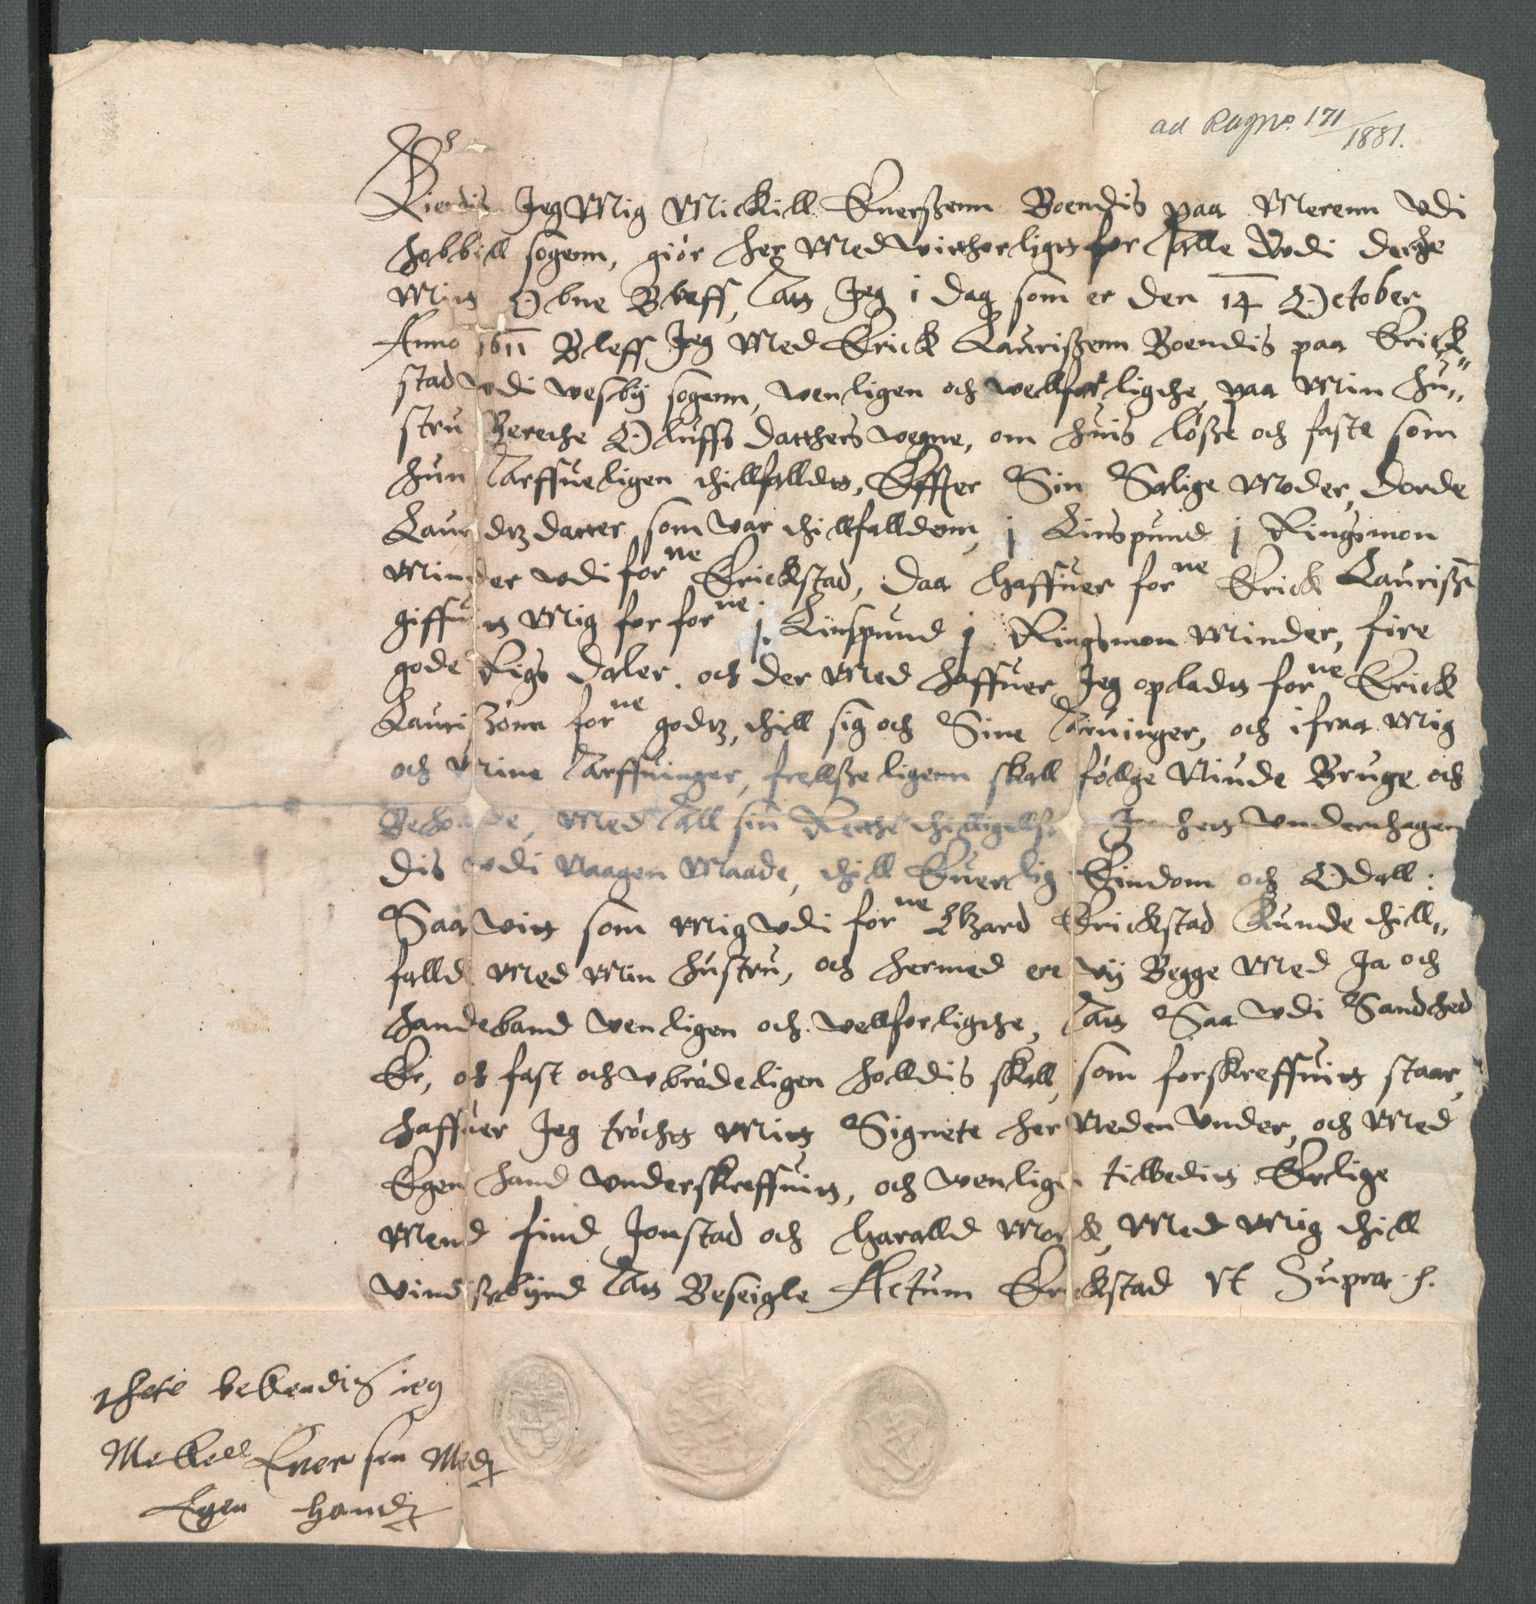 ad Ragnr. 171/1881.
Kiendis Jeg Mig Mickill Euerßenn Boendis paa Merenn vdi
hobbill sogenn, giör her Med vitthorligtt for Alle Vdi dethe
Mitt Obne Breff, Att Jeg i dag som er den 14 October
Anno 1611 Bleff Jeg Med Erick Laurißenn Boendis paa Erick
stad vdi vesby sogenn, venligen och vellforligthe, paa Min hu„
stru Berethe Oluffs datthers vegne, om huis löße och faste som
hun Arffueligen thillfalldtt, Effter Sin Salige Moder, dorde
Lauridtz datter som var thillfalldenn, j Linspund j Ringsmon
Minder vdi forne Erickstad, daa haffuer forne Erick Laurißen
giffuitt Mig for forne j Linspund j Ringsmon Minder, fire
gode Rigs daler. och der Med haffuer Jeg opladtt forne Erick
Laurißönn forne godtz, thill sig och Sine Aruinger, och ifraa Mig
och Mine Arffuinger, frellßeligenn skall föllge Niude Bruge och
Beholde, Med All sin Retthe thilligellße Inthett vndernthagen
dis vdi Naagen Maade, thill Euerlig Eindom och Odall:
Saa vitt som Mig vdi forne Gaard Erickstad kunde thill„
falld Med Min hustru, och hermed ere vy Begge Med Ja och
handeband venligen och vellforligthe, Att Saa vdi Sandhed
Er, och fast och vbrödeligen holldis skall, som forskreffuitt staar,
haffuer Jeg tröchtt Mitt Signete her Neden vnder, och Med
Egen hand vnderskreffuitt, och venligen tilbeditt Erlige
Mend find Jonstad och Haralld Mork, Med Mig thill
vindißbyrd Att Beseigle Actum Erickstad Vt Supra
thete bekendis ieg
Mekell Euersen Med
Egen hand